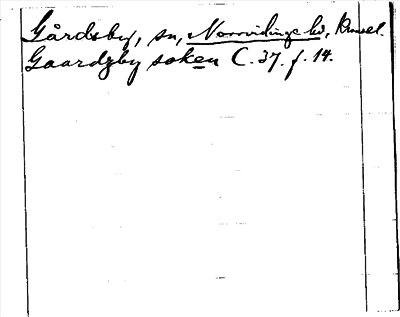 Gårdsby, sn, Norrvidinge hd, Kunsel.
Gaardzby soken C. 37. f. 14.